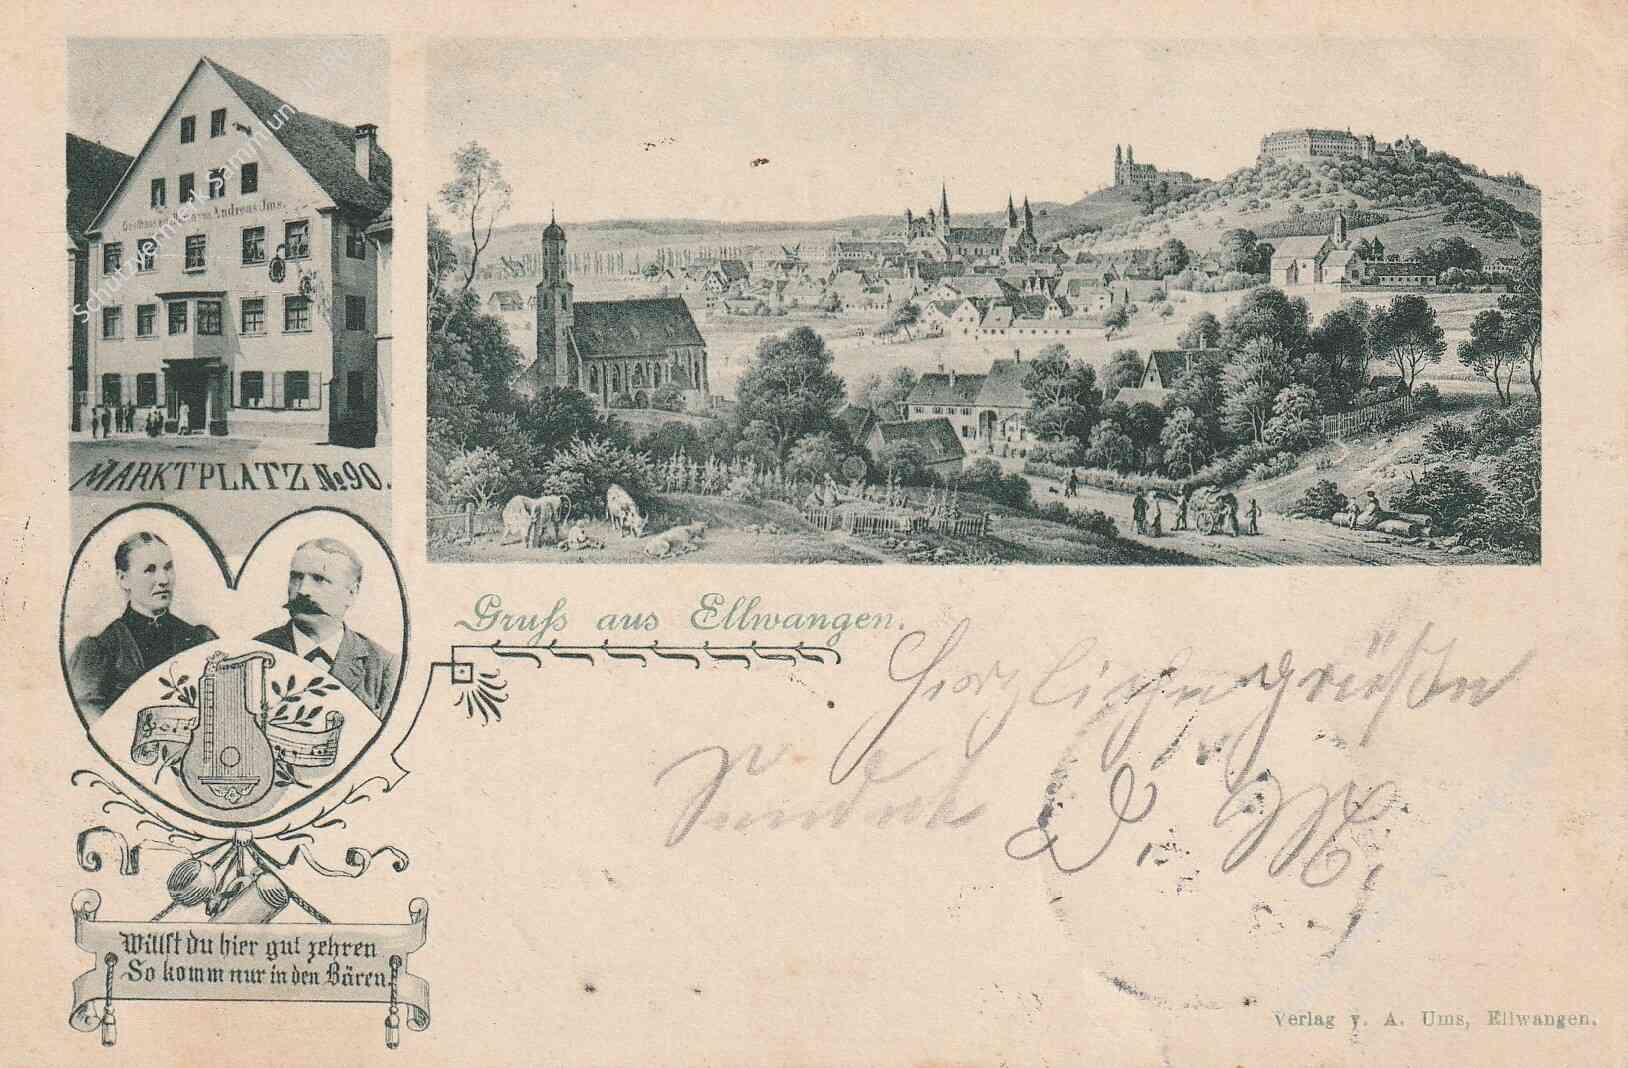 Gasthaus zum Bären Andreas Ums.
MARKTPLATZ No 90.
Gruß aus Ellwangen.
Herzliche grüße
Willst du hier gut zehren
So komm nur in den Bären.
Verlag v. A. Ums, Ellwangen.